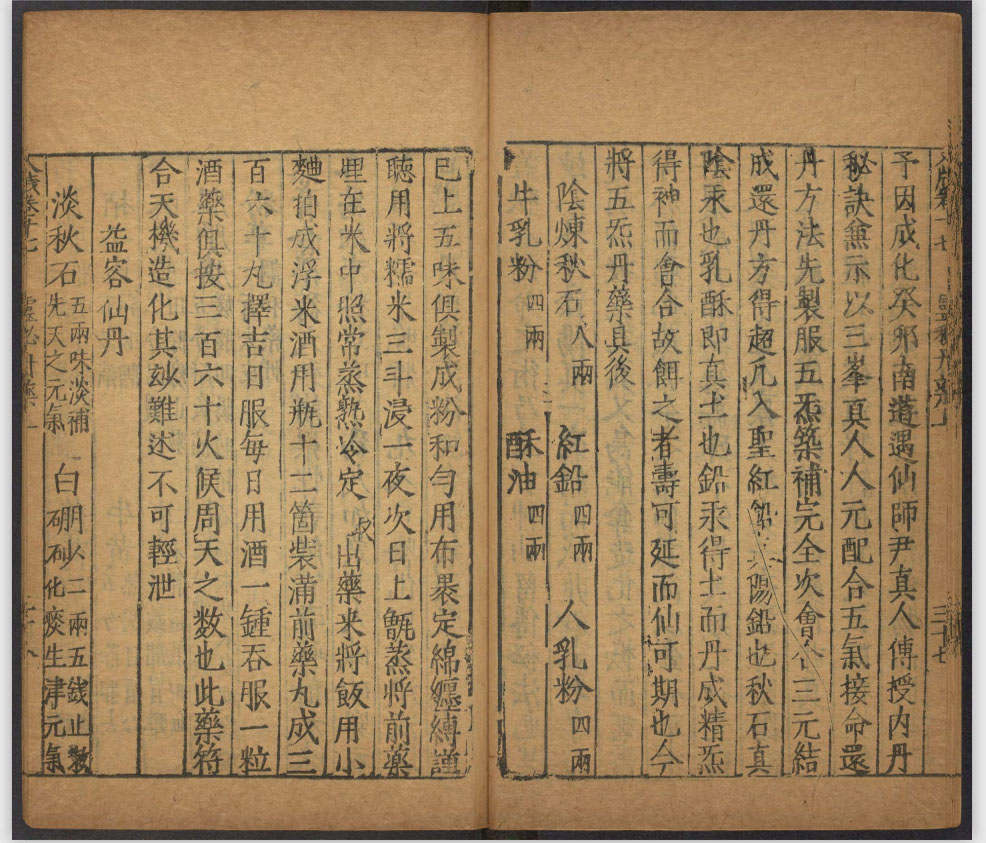 予因成化癸夘南遊遇仙師尹真人傳授内丹
秘訣兼示以三峯真人人元配合五氣接命還
丹方法先製服五炁築補完全次會合三元結
成還丹方得超凡入聖紅鉛太陽鉛也秋石真
陰汞也乳酥即真土也鉛汞得土而丹成精炁
得神而會合故餌之者壽可延而仙可期也今
將五炁丹藥具後
陰煉秋石八兩 紅鉛四兩 人乳粉四兩
牛乳粉四兩 酥油四兩
巳上五味俱製成粉和勻用布裹定綿纏縛謹
聽用將糯米三斗浸一夜次日上甑蒸將前藥
埋在米中照常蒸熟冷定取出藥来將飯用小
麯拍成浮米酒用瓶十二箇裝滿前藥丸成三
百六十丸擇吉日服每日用酒一鍾吞服一粒
酒藥俱按三百六十火候周天之数也此藥符
合天機造化其玅難述不可輕泄
益容仙丹
淡秋石五兩味淡補先天之元氣 白硼砂二兩五錢止嗽化痰生津元氣